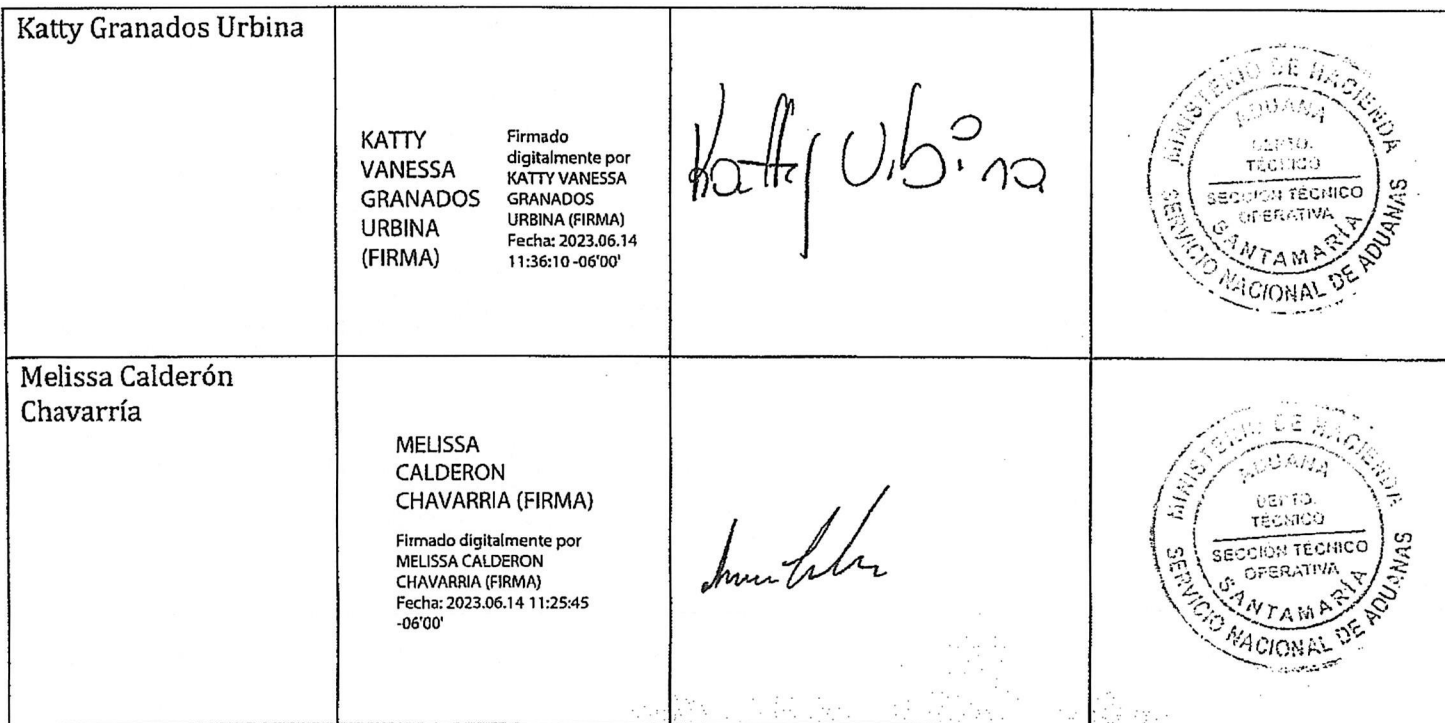 Katty Granados Urbina
KATTY
VANESSA
GRANADOS
URBINA
(FIRMA)
Firmado
digitalmente por
KATTY VANESSA
GRANADOS
URBINA (FIRMA)
Fecha: 2023.06.14
11:36:10 -06'00'
Katty Urbina
MINISTERIO DE HACIENDA
ADUANA
DEPTO.
TÉCNICO
SECCION TÉCNICO
OPERATIVA
SANTAMARÍA
SERVICIO NACIONAL DE ADUANAS
Melissa Calderón
Chavarría
MELISSA
CALDERON
CHAVARRIA (FIRMA)
Firmado digitalmente por
MELISSA CALDERON
CHAVARRIA (FIRMA)
Fecha: 2023.06.14 11:25:45
-06'00'
MINISTERIO DE HACIENDA
ADUANA
DEPTO.
TÉCNICO
SECCION TÉCNICO
OPERATIVA
SANTAMARÍA
SERVICIO NACIONAL DE ADUANAS